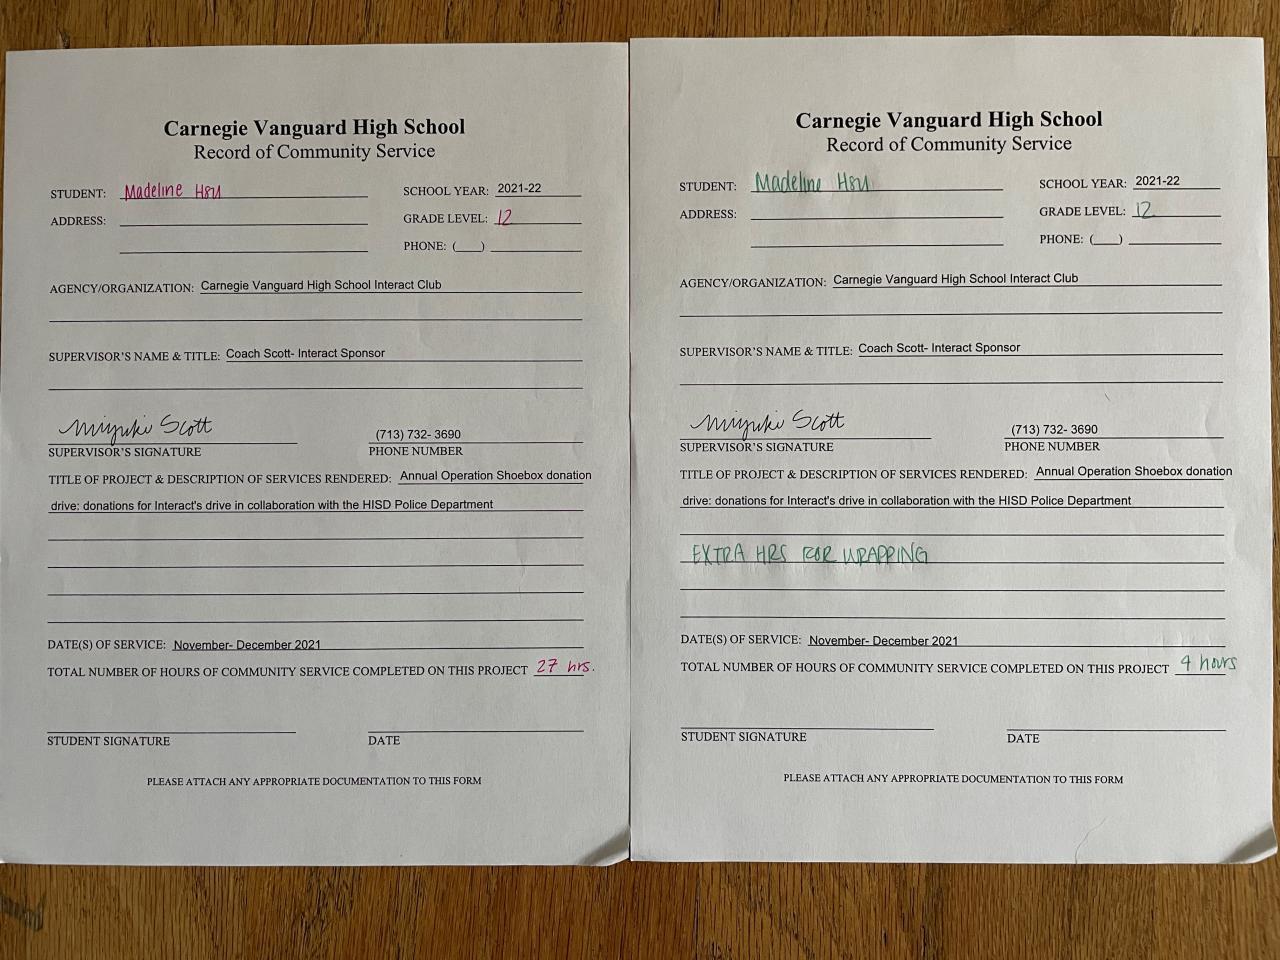 Carnegie Vanguard High School
Record of Community Service
STUDENT: Madeline Hsu SCHOOL YEAR: 2021-22
ADDRESS: GRADE LEVEL: 12
PHONE: (___)
AGENCY/ORGANIZATION: Carnegie Vanguard High School Interact Club
SUPERVISOR'S NAME & TITLE: Coach Scott- Interact Sponsor
Miyuki Scott (713) 732- 3690
SUPERVISOR'S SIGNATURE PHONE NUMBER
TITLE OF PROJECT & DESCRIPTION OF SERVICES RENDERED: Annual Operation Shoebox donation
drive: donations for Interact's drive in collaboration with the HISD Police Department
DATE(S) OF SERVICE: November- December 2021
TOTAL NUMBER OF HOURS OF COMMUNITY SERVICE COMPLETED ON THIS PROJECT 27 hrs.
STUDENT SIGNATURE DATE
PLEASE ATTACH ANY APPROPRIATE DOCUMENTATION TO THIS FORM
Carnegie Vanguard High School
Record of Community Service
STUDENT: Madeline Hsu SCHOOL YEAR: 2021-22
ADDRESS: GRADE LEVEL: 12
PHONE: (___)
AGENCY/ORGANIZATION: Carnegie Vanguard High School Interact Club
SUPERVISOR'S NAME & TITLE: Coach Scott- Interact Sponsor
Miyuki Scott (713) 732- 3690
SUPERVISOR'S SIGNATURE PHONE NUMBER
TITLE OF PROJECT & DESCRIPTION OF SERVICES RENDERED: Annual Operation Shoebox donation
drive: donations for Interact's drive in collaboration with the HISD Police Department
EXTRA HRS FOR WRAPPING
DATE(S) OF SERVICE: November- December 2021
TOTAL NUMBER OF HOURS OF COMMUNITY SERVICE COMPLETED ON THIS PROJECT hours
STUDENT SIGNATURE DATE
PLEASE ATTACH ANY APPROPRIATE DOCUMENTATION TO THIS FORM